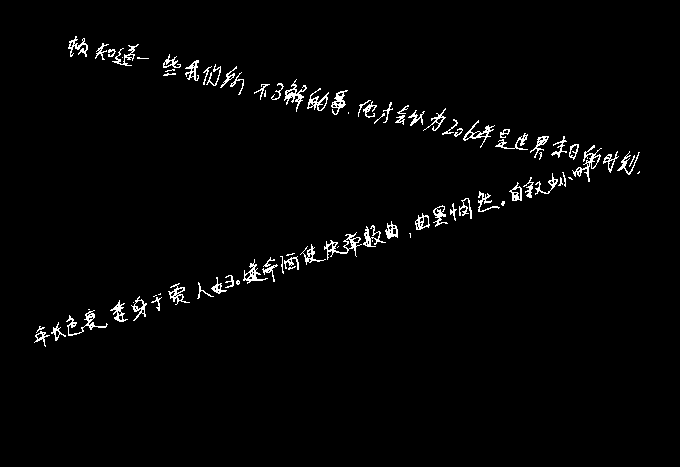 顿知道一些我们所不了解的事,他才会认为2060年是世界末日的时刻.
年长色衰,委身于贾人妇。遂命酒使快弹数曲,曲罢悯然。自叙少小时